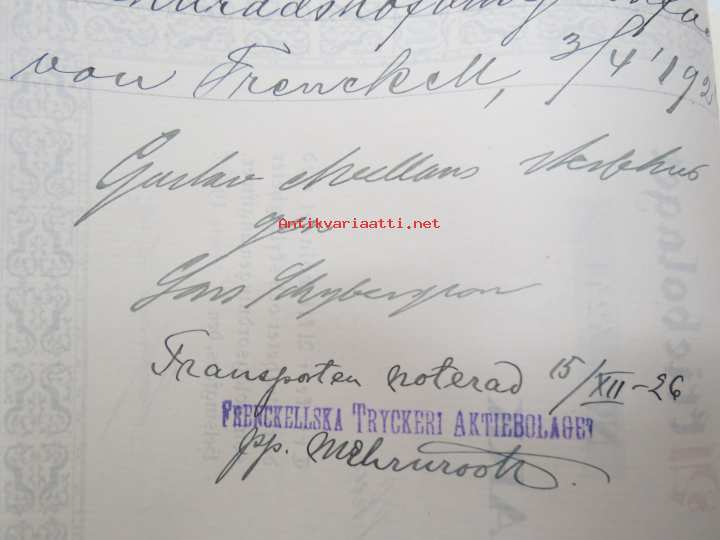 von Frenckell, 3/4 192
Gustav Mellans sterbhus
gm
Lars Schybergson
Transporten noterad 15/XII-26
FRENCKELLSKA TRYCKERI AKTIEBOLAGET
pp. Mehrnrooth
Antikvariaatti.net